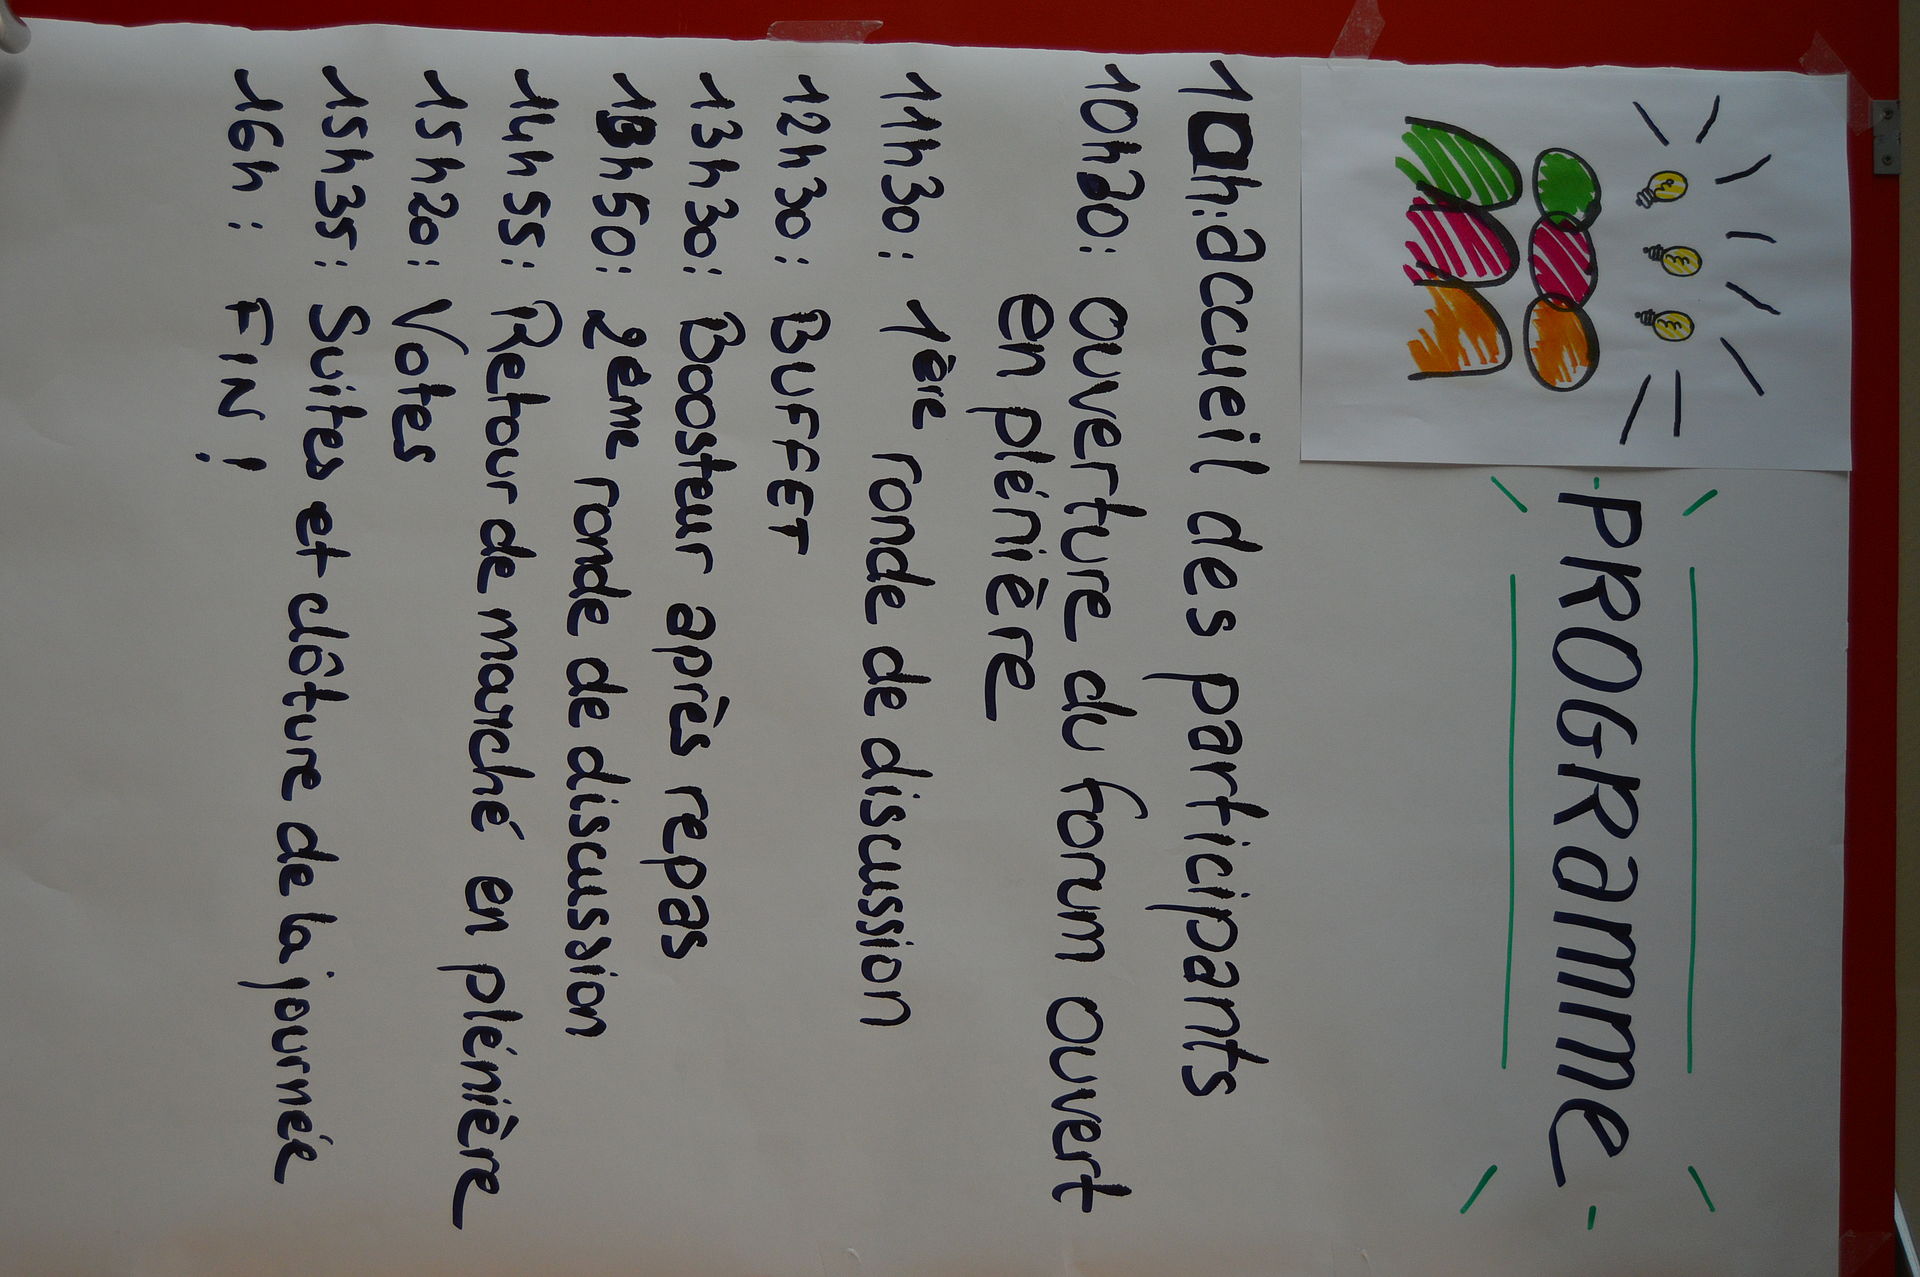 PROGRamme
10h: accueil des participants
10h30: ouverture du forum ouvert
en plénière
11h30: 1ère ronde de discussion
12h30: BUFFET
13h30: Boosteur après repas
13h50: 2ème ronde de discussion
14h55: Retour de marché en plénière
15h20: Votes
15h35: Suites et clôture de la journée
16h: FIN!